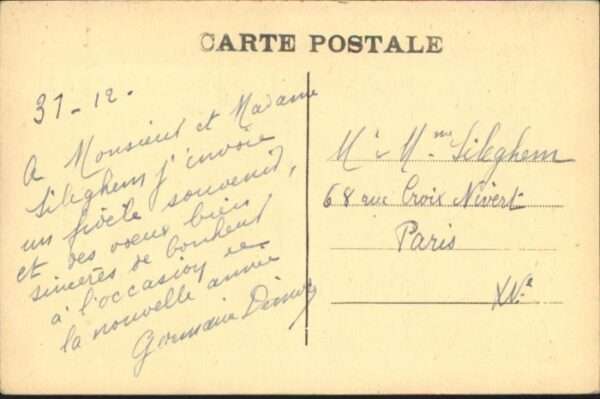 CARTE POSTALE
31-12-
A Monsieur et Madame
Sileghem j'envoie
un fidèle souvenir,
et des vœux bien
sincères de bonheur
à l'occasion de
la nouvelle année
Germaine
Mr & Mme Sileghem
68 rue Croix Nivert
Paris
XVe